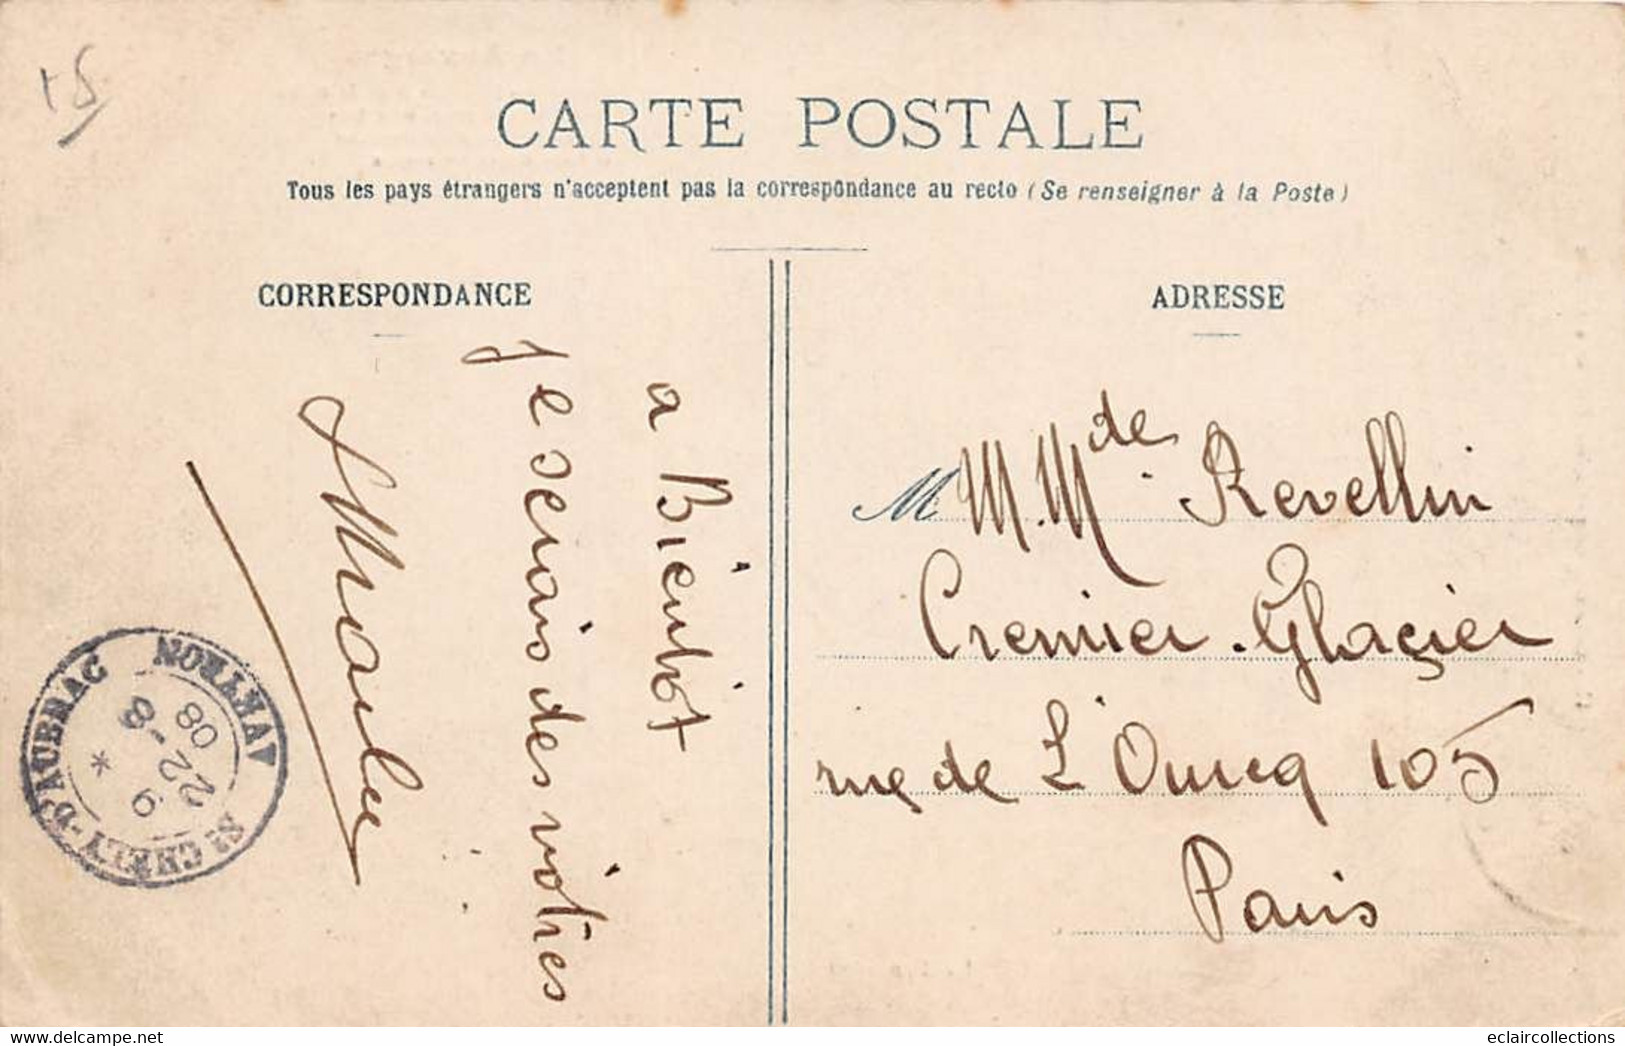 15
CARTE POSTALE
Tous les pays étrangers n'acceptent pas la correspondance au recto (Se renseigner à la Poste)
CORRESPONDANCE
a Bientot
Je serais des vôtres
ADRESSE
M M. Mde Revellin
Cremier. Glaçier
rue de L'Ourcq 105
Paris
ST CHÉLY-D'AUBRAC
AVEYRON
9
22-8
08
eclaircollections